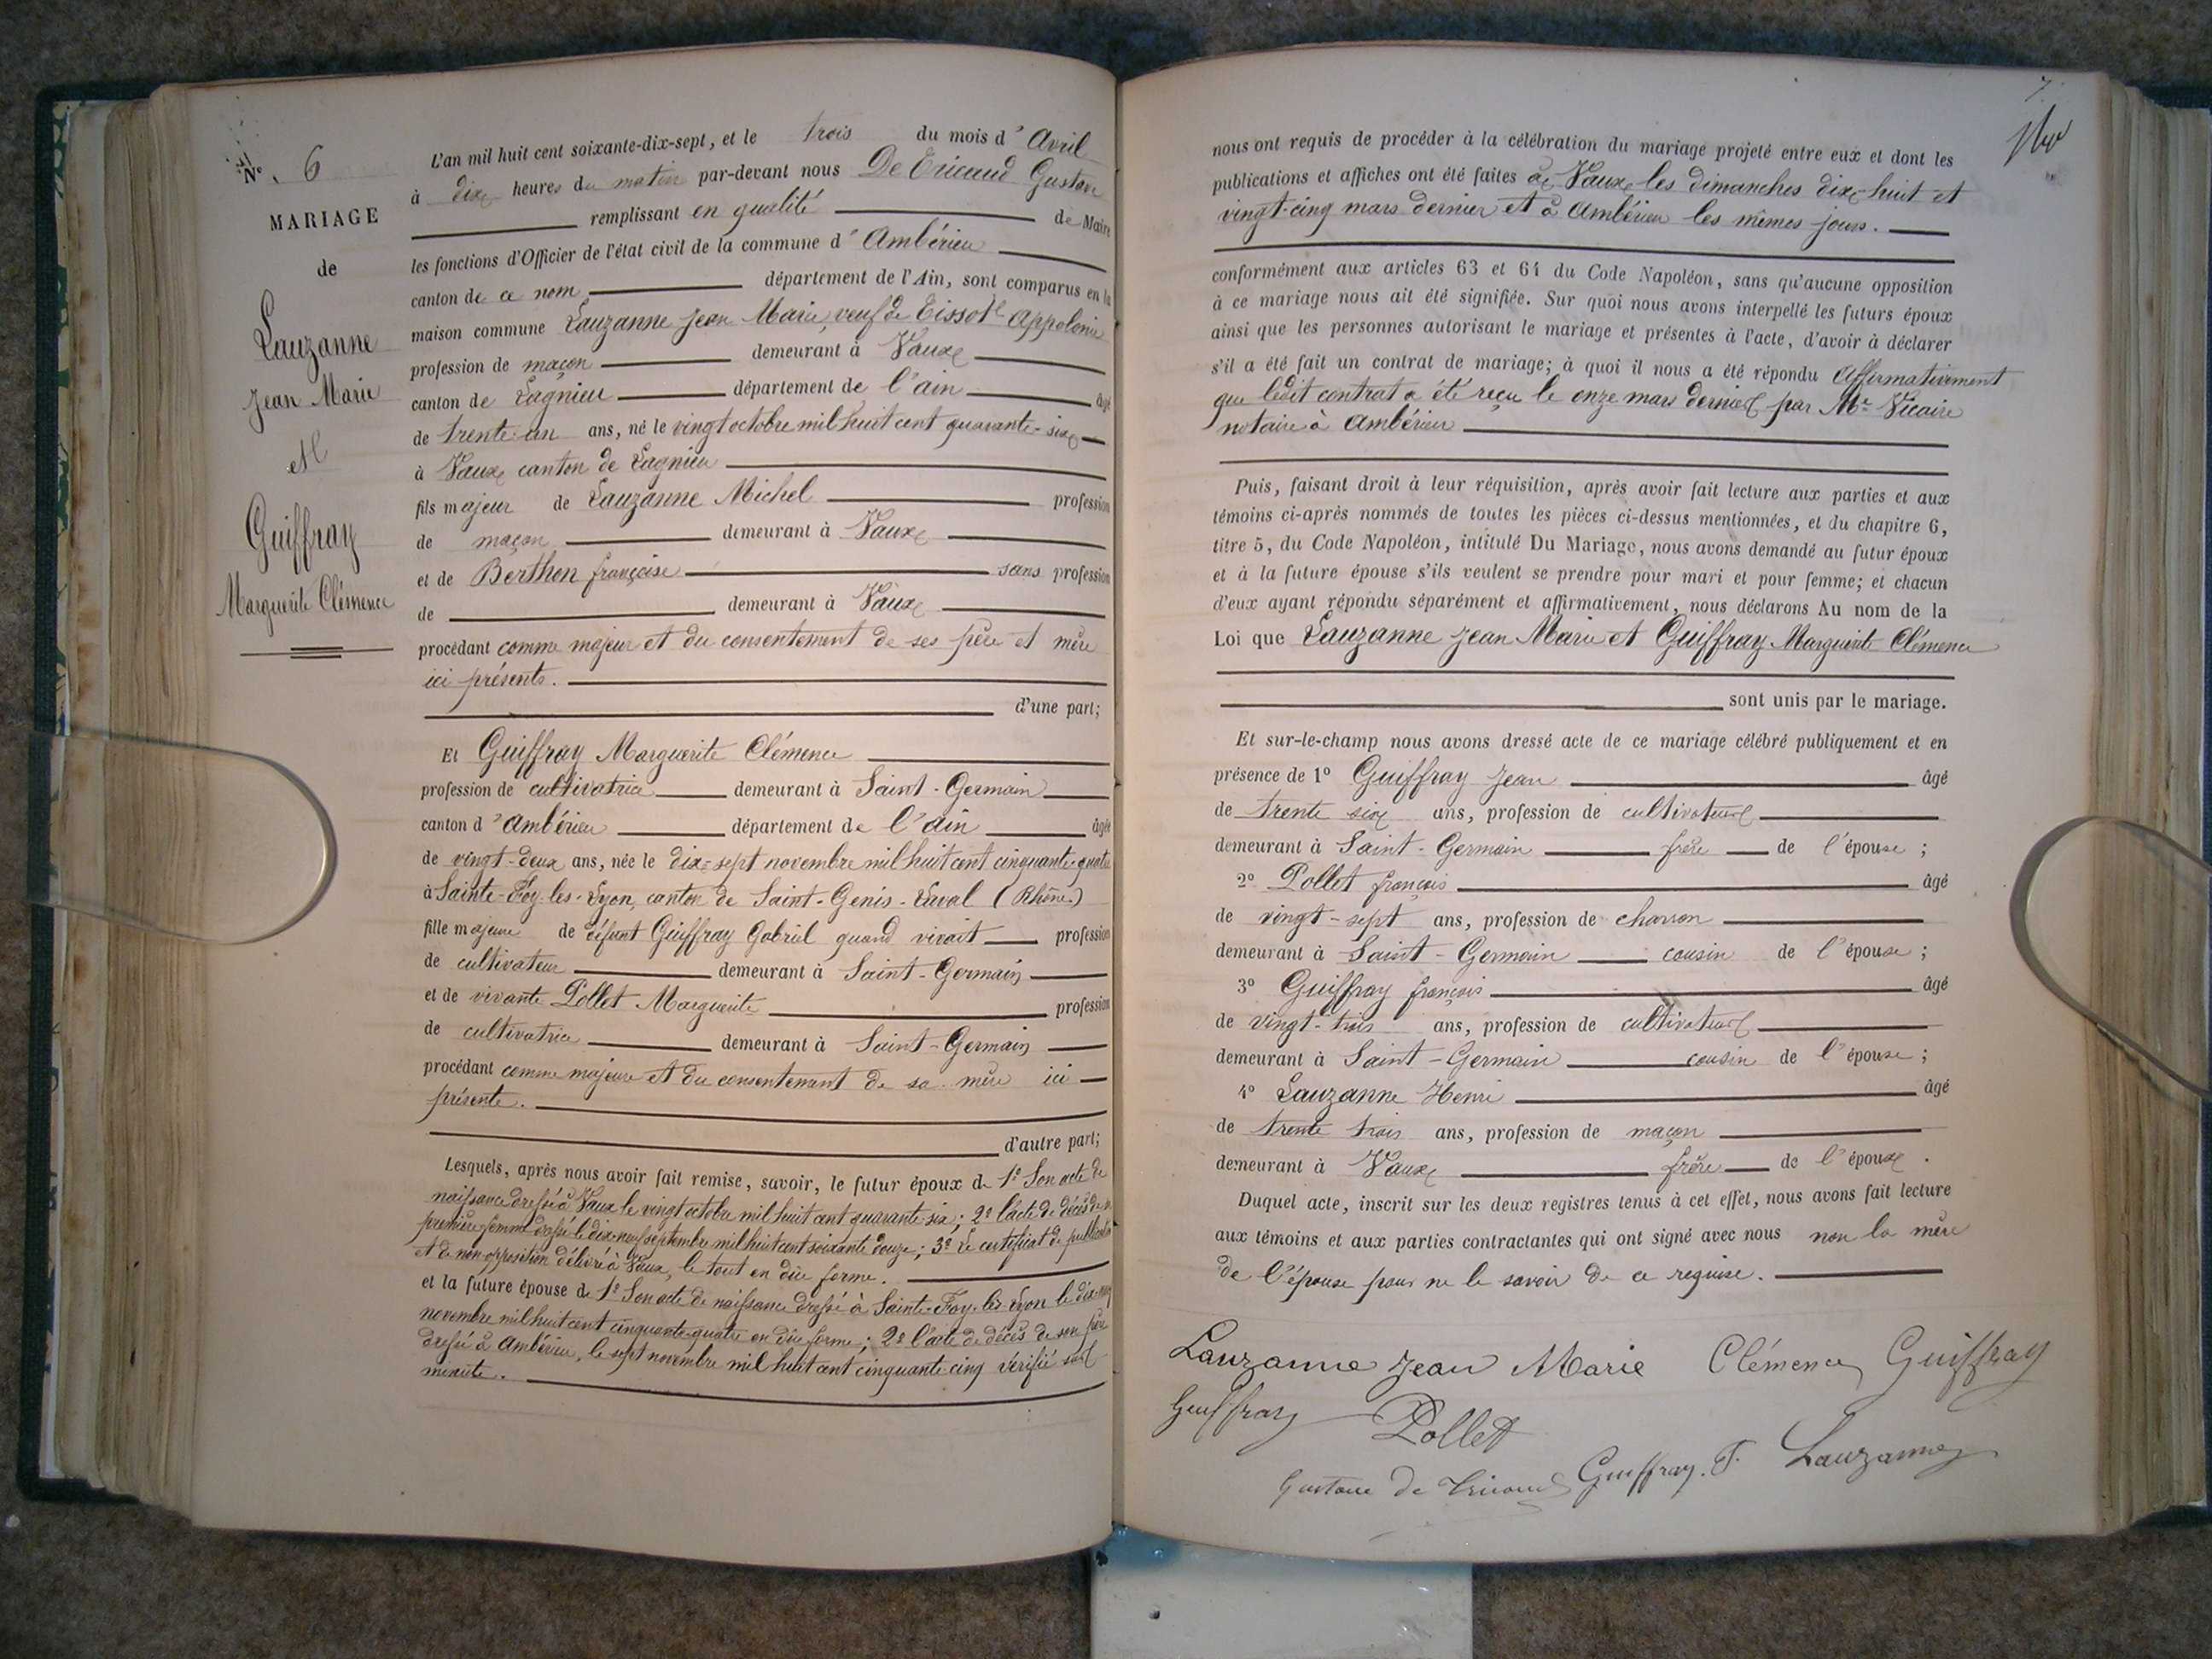 N° 6
MARIAGE
de
Lauzanne
Jean Marie
et
Guiffray
Marguerite Clémence
L'an mil huit cent soixante-dix-sept, et le trois du mois d'Avril
à dix heures du matin par-devant nous De Tricaud Gustave
remplissant en qualité de Maire
les fonctions d'Officier de l'état civil de la commune d'Ambérieu
canton de ce nom département de l'Ain, sont comparus en la
maison commune Lauzanne Jean Marie, veuf de Tissot Appolonie
profession de maçon demeurant à Vaux
canton de Lagnieu département de l'ain âgé
de trente-un ans, né le vingt octobre mil huit cent quarante-six
à Vaux canton de Lagnieu
fils majeur de Lauzanne Michel profession
de maçon demeurant à Vaux
et de Berthon françoise sans profession
de demeurant à Vaux
procédant comme majeur et du consentement de ses père et mère
ici présents.
d'une part;
Et Guiffray Marguerite Clémence
profession de cultivatrice demeurant à Saint-Germain
canton d'Ambérieu département de l'ain âgée
de vingt-deux ans, née le dix-sept novembre mil huit cent cinquante-quatre
à Sainte-Foy-les-Lyon, canton de Saint-Genis-Laval (Rhône)
fille majeure de défunt Guiffray Gabriel quand vivait profession
de cultivateur demeurant à Saint-Germain
et de vivante Pollet Marguerite profession
de cultivatrice demeurant à Saint-Germain
procédant comme majeure et du consentement de sa mère ici
présente.
d'autre part;
Lesquels, après nous avoir fait remise, savoir, le futur époux de 1° Son acte de
naissance dressé à Vaux le vingt octobre mil huit cent quarante-six; 2° l'acte de décès de sa
première femme dressé le dix-neuf septembre mil huit cent soixante douze; 3° Le certificat de publication
et de non opposition délivré à Vaux, le tout en due forme.
et la future épouse de 1° Son acte de naissance dressé à Sainte-Foy-les-Lyon le dix-neuf
novembre mil huit cent cinquante-quatre en due forme; 2° l'acte de décès de son père
dressé à Ambérieu, le sept novembre mil huit cent cinquante-cinq vérifié sur
minute.
7
nous ont requis de procéder à la célébration du mariage projeté entre eux et dont les
publications et affiches ont été faites à Vaux les dimanches dix-huit et
vingt-cinq mars dernier et à Ambérieu les mêmes jours.
conformément aux articles 63 et 64 du Code Napoléon, sans qu'aucune opposition
à ce mariage nous ait été signifiée. Sur quoi nous avons interpellé les futurs époux
ainsi que les personnes autorisant le mariage et présentes à l'acte, d'avoir à déclarer
s'il a été fait un contrat de mariage; à quoi il nous a été répondu Affirmativement
que ledit contrat a été reçu le onze mars dernier par Me Vicaire
notaire à Ambérieu
Puis, faisant droit à leur réquisition, après avoir fait lecture aux parties et aux
témoins ci-après nommés de toutes les pièces ci-dessus mentionnées, et du chapitre 6,
titre 5, du Code Napoléon, intitulé Du Mariage, nous avons demandé au futur époux
et à la future épouse s'ils veulent se prendre pour mari et pour femme; et chacun
d'eux ayant répondu séparément et affirmativement, nous déclarons Au nom de la
Loi que Lauzanne Jean Marie et Guiffray Marguerite Clémence
sont unis par le mariage.
Et sur-le-champ nous avons dressé acte de ce mariage célébré publiquement et en
présence de 1° Guiffray Jean âgé
de trente six ans, profession de cultivateur
demeurant à Saint-Germain frère de l'épouse;
2° Pollet françois âgé
de vingt-sept ans, profession de charron
demeurant à Saint-Germain cousin de l'épouse;
3° Guiffray françois âgé
de vingt-trois ans, profession de cultivateur
demeurant à Saint-Germain cousin de l'épouse;
4° Lauzanne Henri âgé
de trente trois ans, profession de maçon
demeurant à Vaux frère de l'époux.
Duquel acte, inscrit sur les deux registres tenus à cet effet, nous avons fait lecture
aux témoins et aux parties contractantes qui ont signé avec nous non la mère
de l'épouse pour ne le savoir de ce requise.
Lauzanne Jean Marie Clémence Guiffray
Guiffray Pollet
Gustave de Tricaud Guiffray. F. Lauzanne